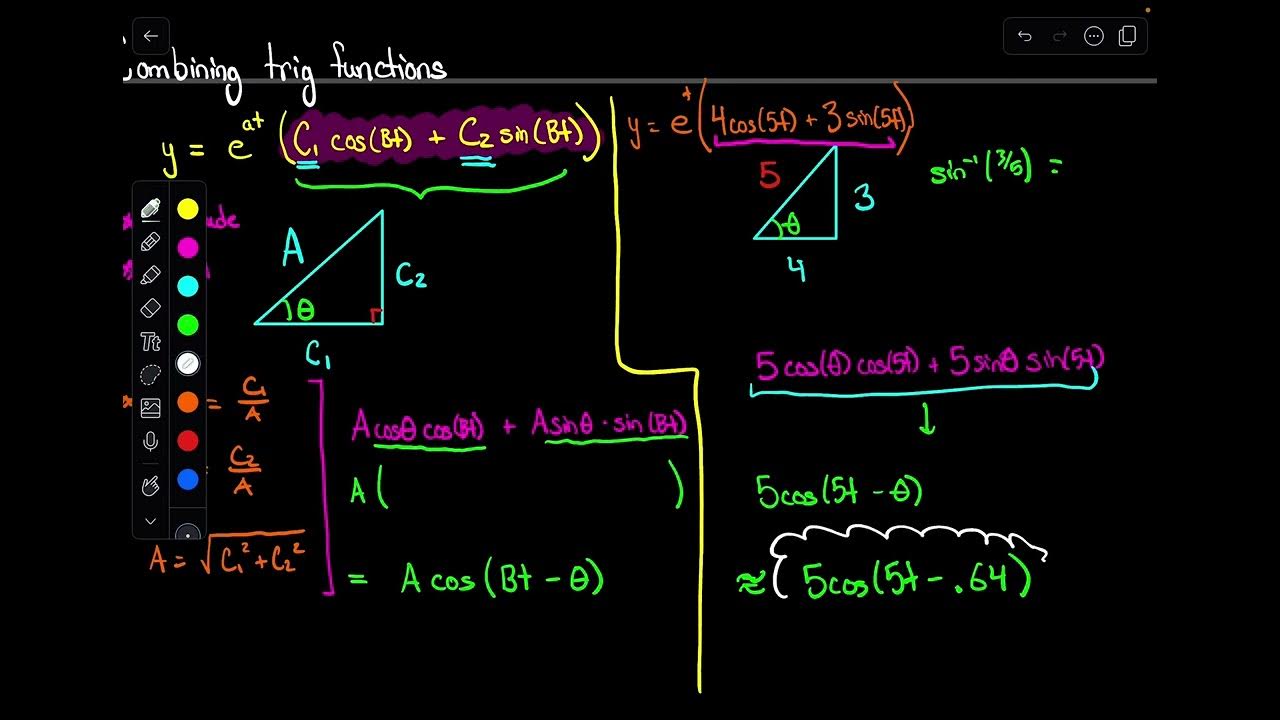 combining trig functions
y = e^at (C₁ cos(Bt) + C₂ sin(Bt))
A
C₂
θ
C₁
= C₁/A
C₂/A
A = √(C₁² + C₂²)
A cosθ cos(Bt) + A sinθ · sin(Bt)
A ( )
= A cos(Bt - θ)
y = e^t (4cos(5t) + 3 sin(5t))
5
3
θ
4
sin⁻¹(3/5) =
5 cos(θ) cos(5t) + 5 sinθ sin(5t)
5cos(5t - θ)
≈ (5cos(5t - .64)
Tt